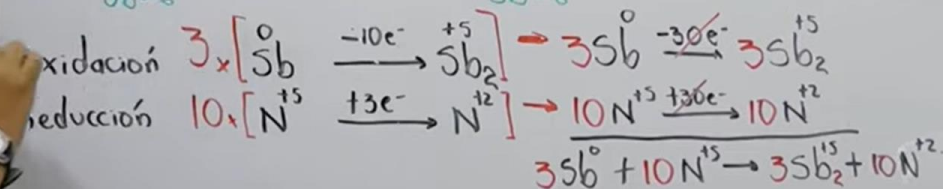 xidación 3x[Sb⁰ -10e⁻→ Sb₂⁺⁵] → 3Sb⁰ -30e⁻→ 3Sb₂⁺⁵
educción 10x[N⁺⁵ +3e⁻→ N⁺²] → 10N⁺⁵ +30e⁻→ 10N⁺²
3Sb⁰ + 10N⁺⁵ → 3Sb₂⁺⁵ + 10N⁺²